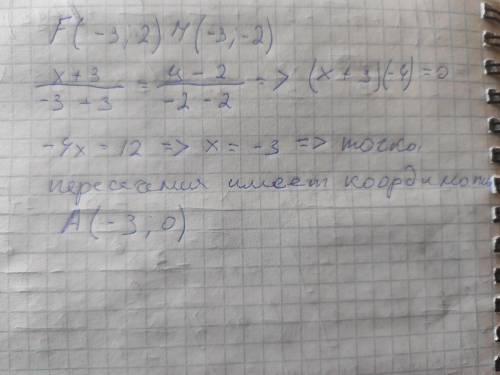 F(-3; 2) M(-3; -2)
x+3/-3+3 = y-2/-2-2 => (x+3)(-4)=0
-4x = 12 => x = -3 => точка
пересечения имеет координаты
A(-3; 0)